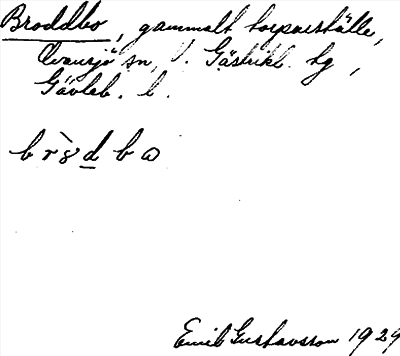 Broddbo, gammalt torpareställe,
Ovansjö sn, V. Gästrikl. hg,
Gävleb. l.
Emil Gustavsson 1929